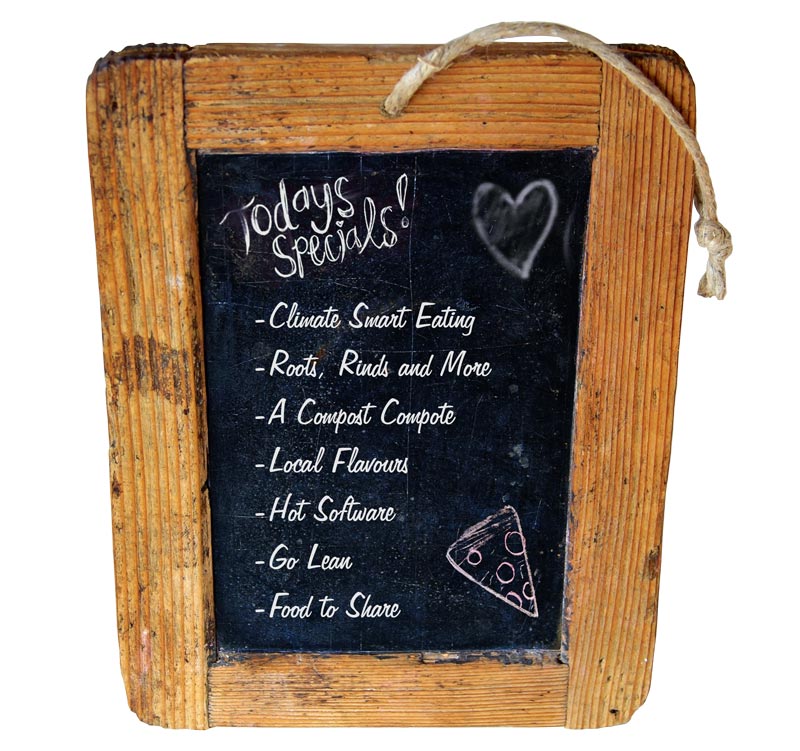 Todays
specials!
-Climate Smart Eating
-Roots, Rinds and More
-A Compost Compote
-Local Flavours
-Hot Software
-Go Lean
-Food to Share